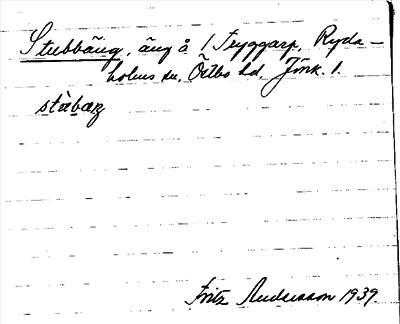 Stubbäng, äng å 1 Tryggarp, Ryda-
holms sn, Östbo hd, Jönk. l.
stàbæŋ
Fritz Andersson 1939